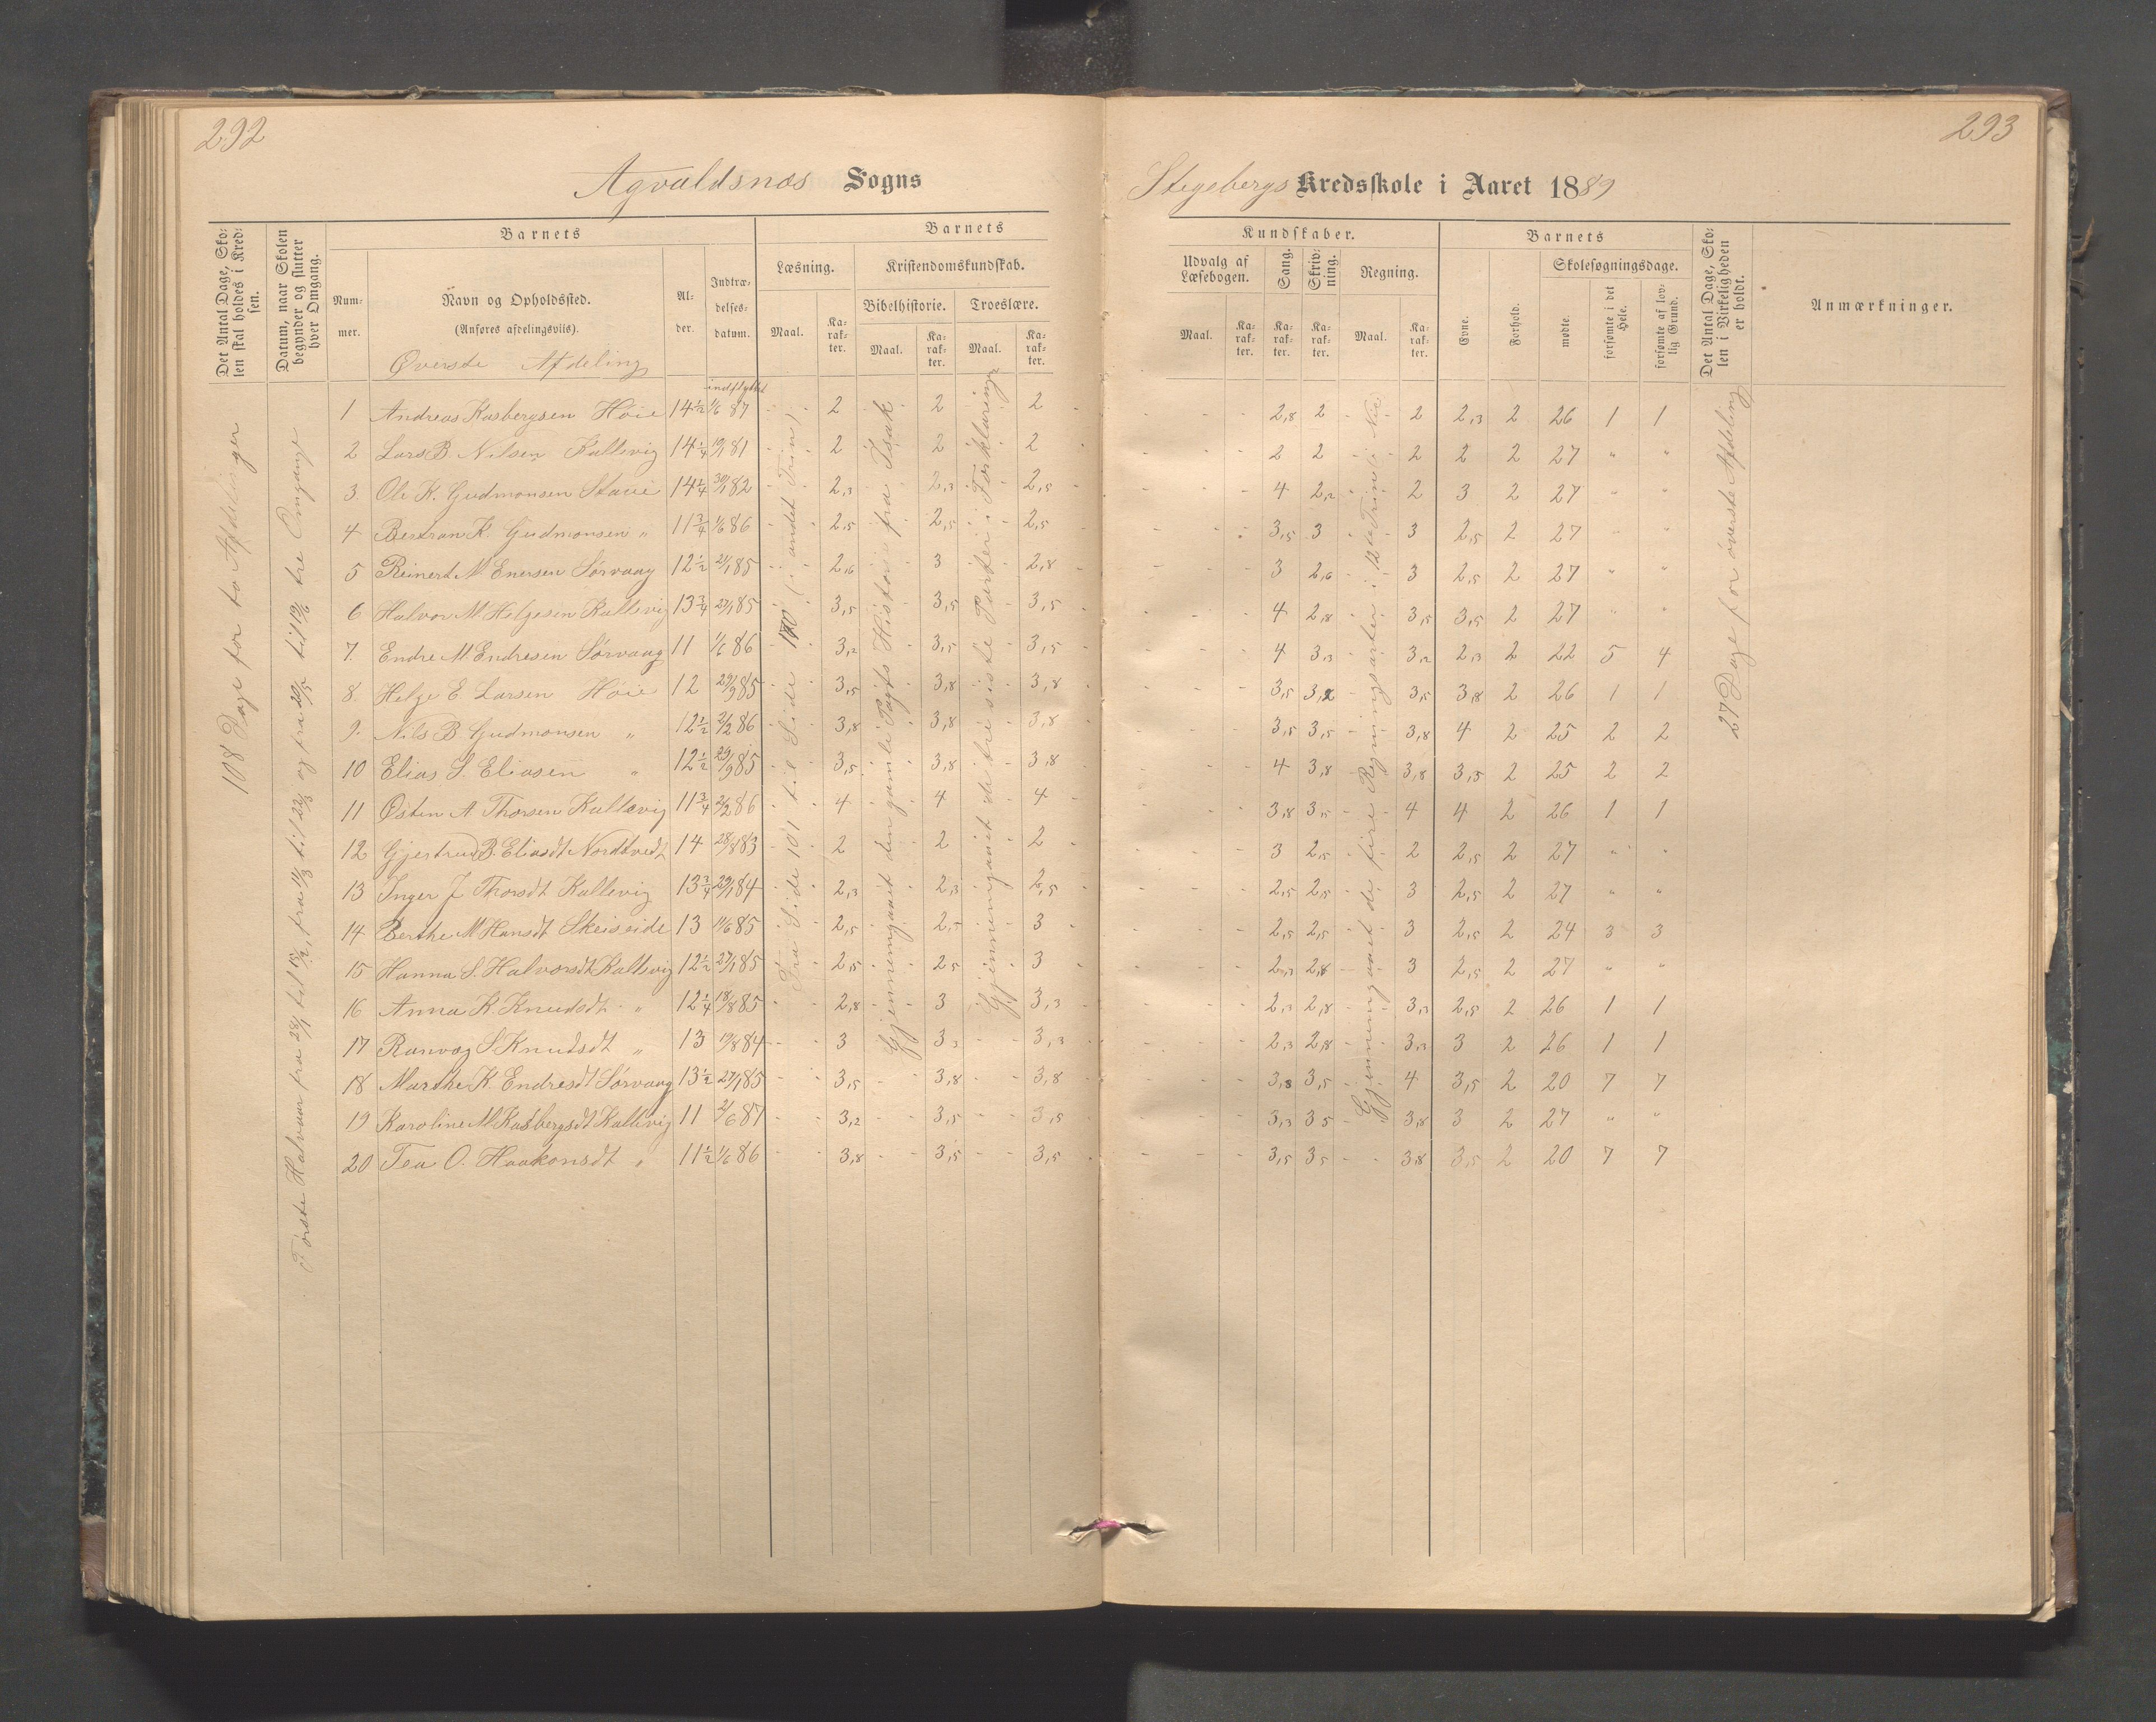 292
293
Agvaldsnæs Sogns
Stegebergs Kredsskole i Aaret 1889
Det Antal Dage, Skolen skal holdes i Kredsen.
Datum, naar Skolen begynder og slutter hver Omgang.
Barnets
Barnets
Kundskaber.
Barnets
Det Antal Dage, Skolen i Virkeligheden er holdt.
Anmærkninger.
Nummer.
Navn og Opholdssted.
(Anføres afdelingsviis).
Alder.
Indtrædelsesdatum.
Læsning.
Kristendomskundskab.
Bibelhistorie.
Troeslære.
Maal.
Karakter.
Maal.
Karakter.
Maal.
Karakter.
Udvalg af Læsebogen.
Sang.
Skrivning.
Regning.
Maal.
Karakter.
Karakter.
Karakter.
Maal.
Karakter.
Evne.
Forhold.
Skolesøgningsdage.
mødte.
forsømte i det Hele.
forsømte af lovlig Grund.
Øverste Afdeling
indflyttet
108 Dage for to Afdelinger
Første Halvaar fra 28/1 til 13/2, fra 11/3 til 22/3 og fra 20/5 til 19/6 tre Omgange
Fra Side 101 til Side 170 (i andet Trin)
Gjennemgaaet den gamle Pagts Historie fra Isak
Gjennemgaaet de tre sidste Parter i Forklaringen
Gjennemgaaet de fire Regningsarter i 12te Trin
27 Dage for øverste Afdeling
1 Andreas Rasbergsen Høie 14 1/2 1/6 87 2 2 2 2,8 2 2 2,3 2 26 1 1
2 Lars B. Nilsen Kallevig 14 1/4 19/1 81 2 2 2 2 2 2 2 2 27 " "
3 Ole K. Gudmonsen Staue 14 1/4 30/1 82 2,3 2,3 2,5 4 2,2 2 3 2 27 " "
4 Bertran K. Gudmonsen " 11 3/4 1/6 86 2,5 2,5 2,5 3,5 3 3 2,5 2 27 " "
5 Reinert M. Enersen Sørvaag 12 1/2 21/1 85 2,6 3 2,8 3 2,6 3 2,5 2 27 " "
6 Halvor M. Helgesen Kallevig 13 3/4 27/1 85 3,5 3,5 3,5 4 2,8 3,5 3,5 2 27 " "
7. Endre M. Endresen Sørvaag 11 1/6 86 3,2 3,5 3,5 4 3,3 3,2 2,3 2 22 5 4
8. Helge E Larsen Høie 12 29/9 85 3,5 3,8 3,8 3,5 3,2 3,5 3,8 2 26 1 1
9. Nils B Gudmonsen " 12 1/2 2/2 86 3,8 3,8 3,8 3,5 3,5 3,8 4 2 25 2 2
10 Elias S. Eliasen " 12 1/2 29/9 85 3,5 3,8 3,8 4 3,8 3,8 3,5 2 25 2 2
11 Østen A Thorsen Kallevig 11 3/4 2/2 86 4 4 4 3,8 3,5 4 4 2 26 1 1
12 Gjertrud B. Eliasdt Nordtvedt 14 28/8 83 2 2 2 3 2,5 2 2,5 2 27 " "
13 Inger J Thorsdt Kallevig 13 3/4 29/1 84 2,3 2,3 2,5 2,5 2,5 3 2,5 2 27 " "
14 Berthe M Hansdt Skeiseide 13 11/6 85 2,5 2,5 3 2,5 2,5 3 2,5 2 24 3 3
15 Hanna S. Halvorsdt Kallevig 12 1/2 27/1 85 2,5 2,5 3 2,3 2,8 3 2,5 2 27 " "
16 Anna K. Knudsdt " 12 1/4 18/8 85 2,8 3 3,3 2,3 2,8 3,3 2,5 2 26 1 1
17 Ranvag S Knudsdt " 13 19/8 84 3 3,3 3,3 2,3 2,8 3,3 3 2 26 1 1
18 Marthe K. Endresdt Sørvaag 13 1/2 27/1 85 3,5 3,8 3,8 3,8 3,5 4 3,5 2 20 7 7
19 Karoline M Rasbergsdt Kallevig 11 2/6 87 3,2 3,5 3,5 3,3 3 5 3,8 3 2 27 " "
20 Tea O. Haakonsdt " 11 1/2 1/6 86 3,8 3,5 3,5 3,5 3 5 3,8 3,5 2 20 7 7